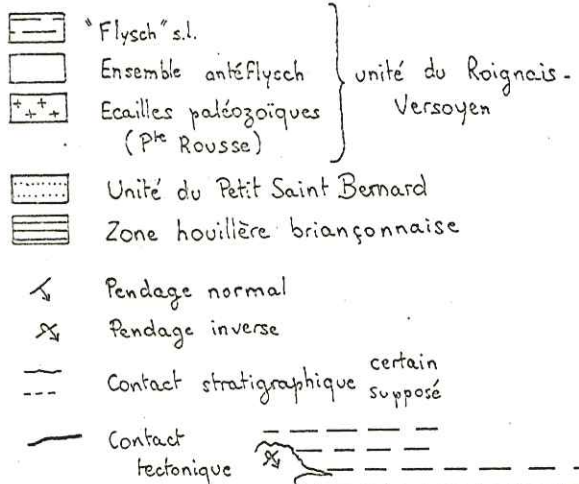 "Flysch" s.l.
Ensemble antéflysch
Ecailles paléozoïques
(Pte Rousse)
unité du Roignais-
Versoyen
Unité du Petit Saint Bernard
Zone houillère briançonnaise
Pendage normal
Pendage inverse
Contact stratigraphique certain
supposé
Contact
tectonique